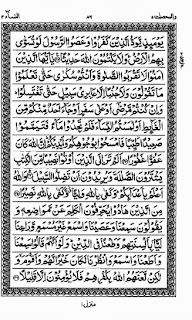 والمحصنت ٥ ٨٦ النساء ٤
يَوْمَئِذٍ يَّوَدُّ الَّذِيْنَ كَفَرُوْا وَعَصَوُا الرَّسُوْلَ لَوْ تُسَوّٰى
بِهِمُ الْاَرْضُ وَلَا يَكْتُمُوْنَ اللّٰهَ حَدِيْثًا يٰۤاَيُّهَا الَّذِيْنَ
اٰمَنُوْا لَا تَقْرَبُوا الصَّلٰوةَ وَاَنْتُمْ سُكٰرٰى حَتّٰى تَعْلَمُوْا
مَا تَقُوْلُوْنَ وَلَا جُنُبًا اِلَّا عَابِرِيْ سَبِيْلٍ حَتّٰى تَغْتَسِلُوْا
وَاِنْ كُنْتُمْ مَّرْضٰۤى اَوْ عَلٰى سَفَرٍ اَوْ جَآءَ اَحَدٌ مِّنْكُمْ مِّنَ
الْغَآئِطِ اَوْ لٰمَسْتُمُ النِّسَآءَ فَلَمْ تَجِدُوْا مَآءً فَتَيَمَّمُوْا
صَعِيْدًا طَيِّبًا فَامْسَحُوْا بِوُجُوْهِكُمْ وَاَيْدِيْكُمْ اِنَّ اللّٰهَ كَانَ
عَفُوًّا غَفُوْرًا اَلَمْ تَرَ اِلَى الَّذِيْنَ اُوْتُوْا نَصِيْبًا مِّنَ الْكِتٰبِ
يَشْتَرُوْنَ الضَّلٰلَةَ وَيُرِيْدُوْنَ اَنْ تَضِلُّوا السَّبِيْلَ وَاللّٰهُ
اَعْلَمُ بِاَعْدَآئِكُمْ وَكَفٰى بِاللّٰهِ وَلِيًّا وَّكَفٰى بِاللّٰهِ نَصِيْرًا
مِنَ الَّذِيْنَ هَادُوْا يُحَرِّفُوْنَ الْكَلِمَ عَنْ مَّوَاضِعِهٖ وَ
يَقُوْلُوْنَ سَمِعْنَا وَعَصَيْنَا وَاسْمَعْ غَيْرَ مُسْمَعٍ وَّرَاعِنَا
لَيًّا بِاَلْسِنَتِهِمْ وَطَعْنًا فِي الدِّيْنِ وَلَوْ اَنَّهُمْ قَالُوْا سَمِعْنَا
وَاَطَعْنَا وَاسْمَعْ وَانْظُرْنَا لَكَانَ خَيْرًا لَّهُمْ وَاَقْوَمَ وَ
لٰكِنْ لَّعَنَهُمُ اللّٰهُ بِكُفْرِهِمْ فَلَا يُؤْمِنُوْنَ اِلَّا قَلِيْلًا
منزل ١